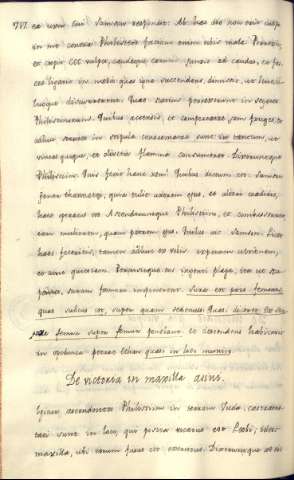 787. ea uxor. Cui Samson respondit. Ab hac die non erit culpa
in me contra Philisteos faciam enim vobis mala. Perrexit,
et cepit CCC vulpes, caudasque earum junxit ad caudas, et fa-
ces ligavit in medio quas igne succendens, dimisit, ut huc il-
lucque discurrerent. Quae statim perrexerunt in segetes
Philistinorum. Quibus accensis, et comportatae jam fruges, et
adhuc stantes in stipula concrematae sunt in tantum, ut
vineas quoque, et oliveta flamma consumeret. Dixeruntque
Philistiim. Quis fecit hanc rem? Quibus dictum est. Samson
gener thamnathei, quia tulit uxorem ejus, et alteri tradidit,
haec operatus est. Ascenderuntque Philistiim, et combusserunt
tam mulierem, quam patrem ejus. Quibus ait Samson. Licet
haec feceritis, tamen adhuc ex vobis expetam ultionem,
et tunc quiescam. Percussitque eos ingenti plaga, ita ut stu-
pentes, suram femori imponerent. Sura est pars
quae est, super quam
semur super femur et descendens habitavit
in spelunca petrae Ethan quasi in loco munito.
De victoria in maxilla asini.
Igitur, ascendentes Philistiim in terram Juda, castrame-
tati sunt in loco, qui postea vocatus est Lechi, idest
maxilla, ubi eorum fusus est exercitus. Dixeruntque ad eos